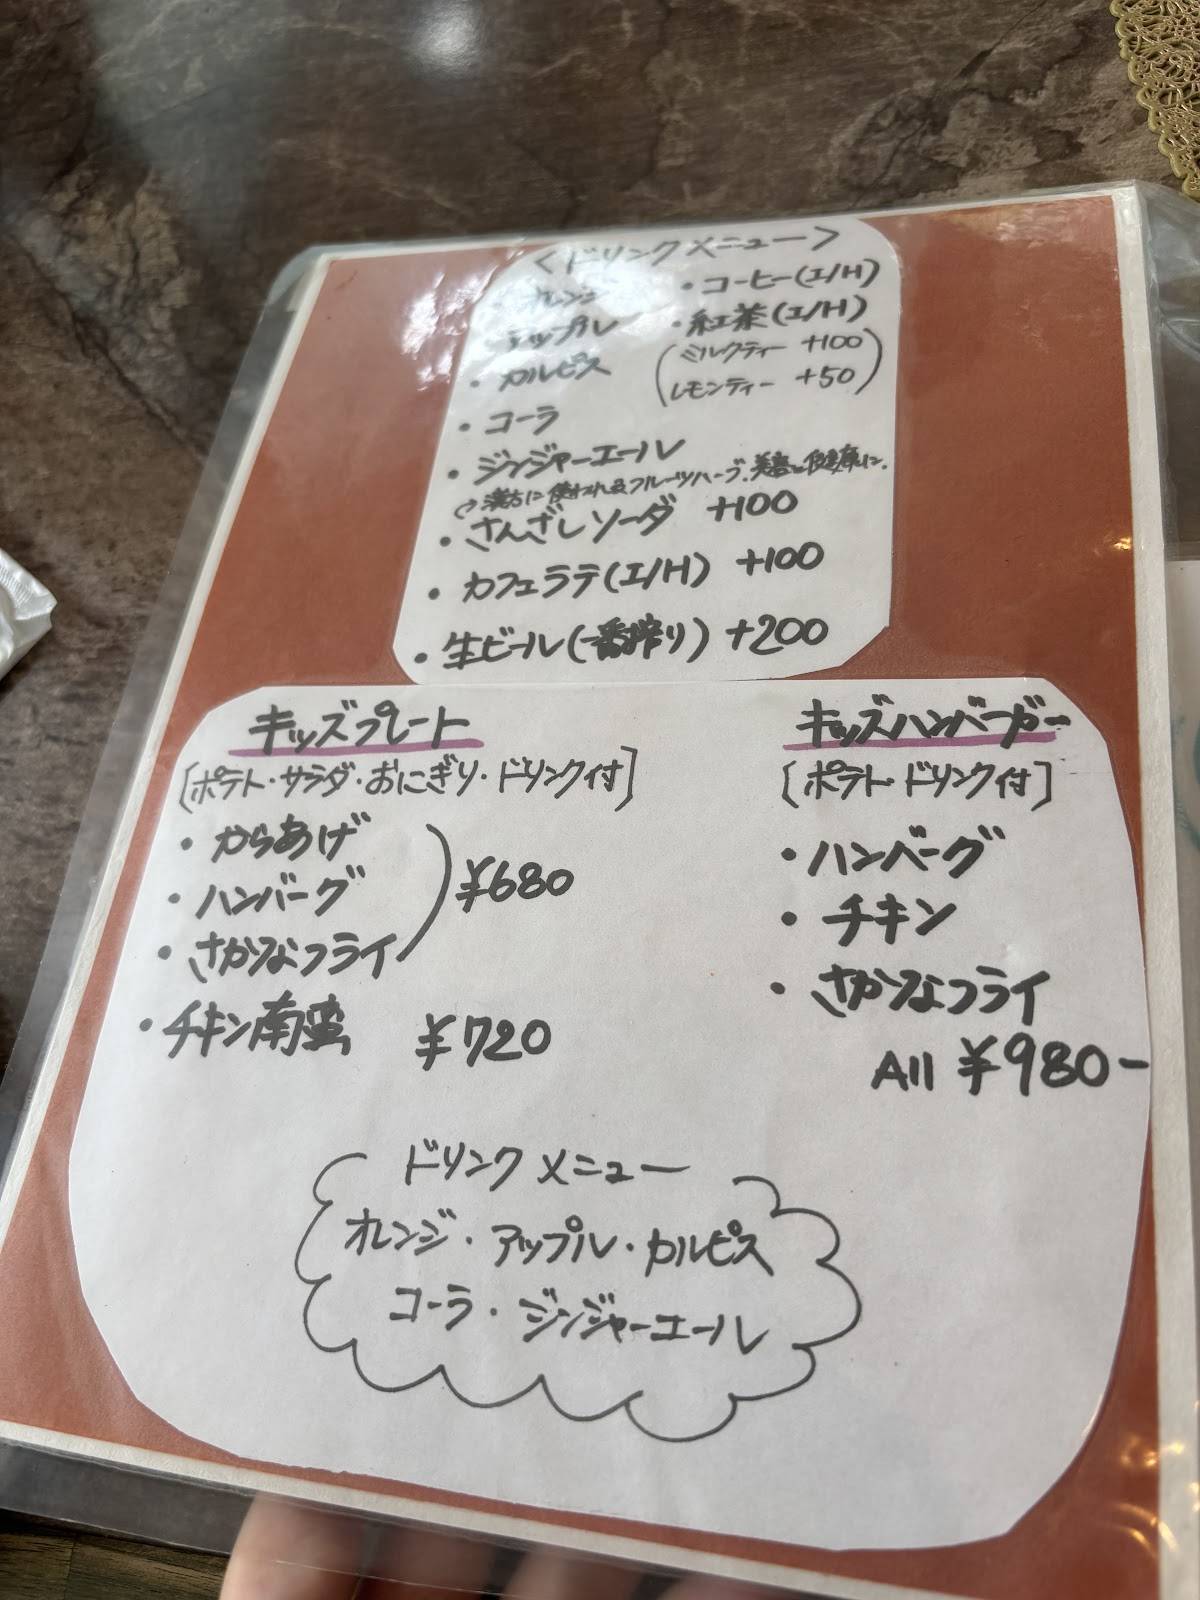 <ドリンクメニュー>
・オレンジ
・アップル
・カルピス
・コーラ
・ジンジャーエール
・コーヒー(I/H)
・紅茶(I/H)
(ミルクティー +100
レモンティー +50)
漢方に使われるフルーツハーブ。美容と健康に。
・さんざしソーダ +100
・カフェラテ(I/H) +100
・生ビール(一番搾り) +200
キッズプレート
[ポテト・サラダ・おにぎり・ドリンク付]
・からあげ
・ハンバーグ
・さかなフライ
¥680
・チキン南蛮 ¥720
キッズハンバーガー
[ポテト・ドリンク付]
・ハンバーグ
・チキン
・さかなフライ
All ¥980-
ドリンクメニュー
オレンジ・アップル・カルピス
コーラ・ジンジャーエール